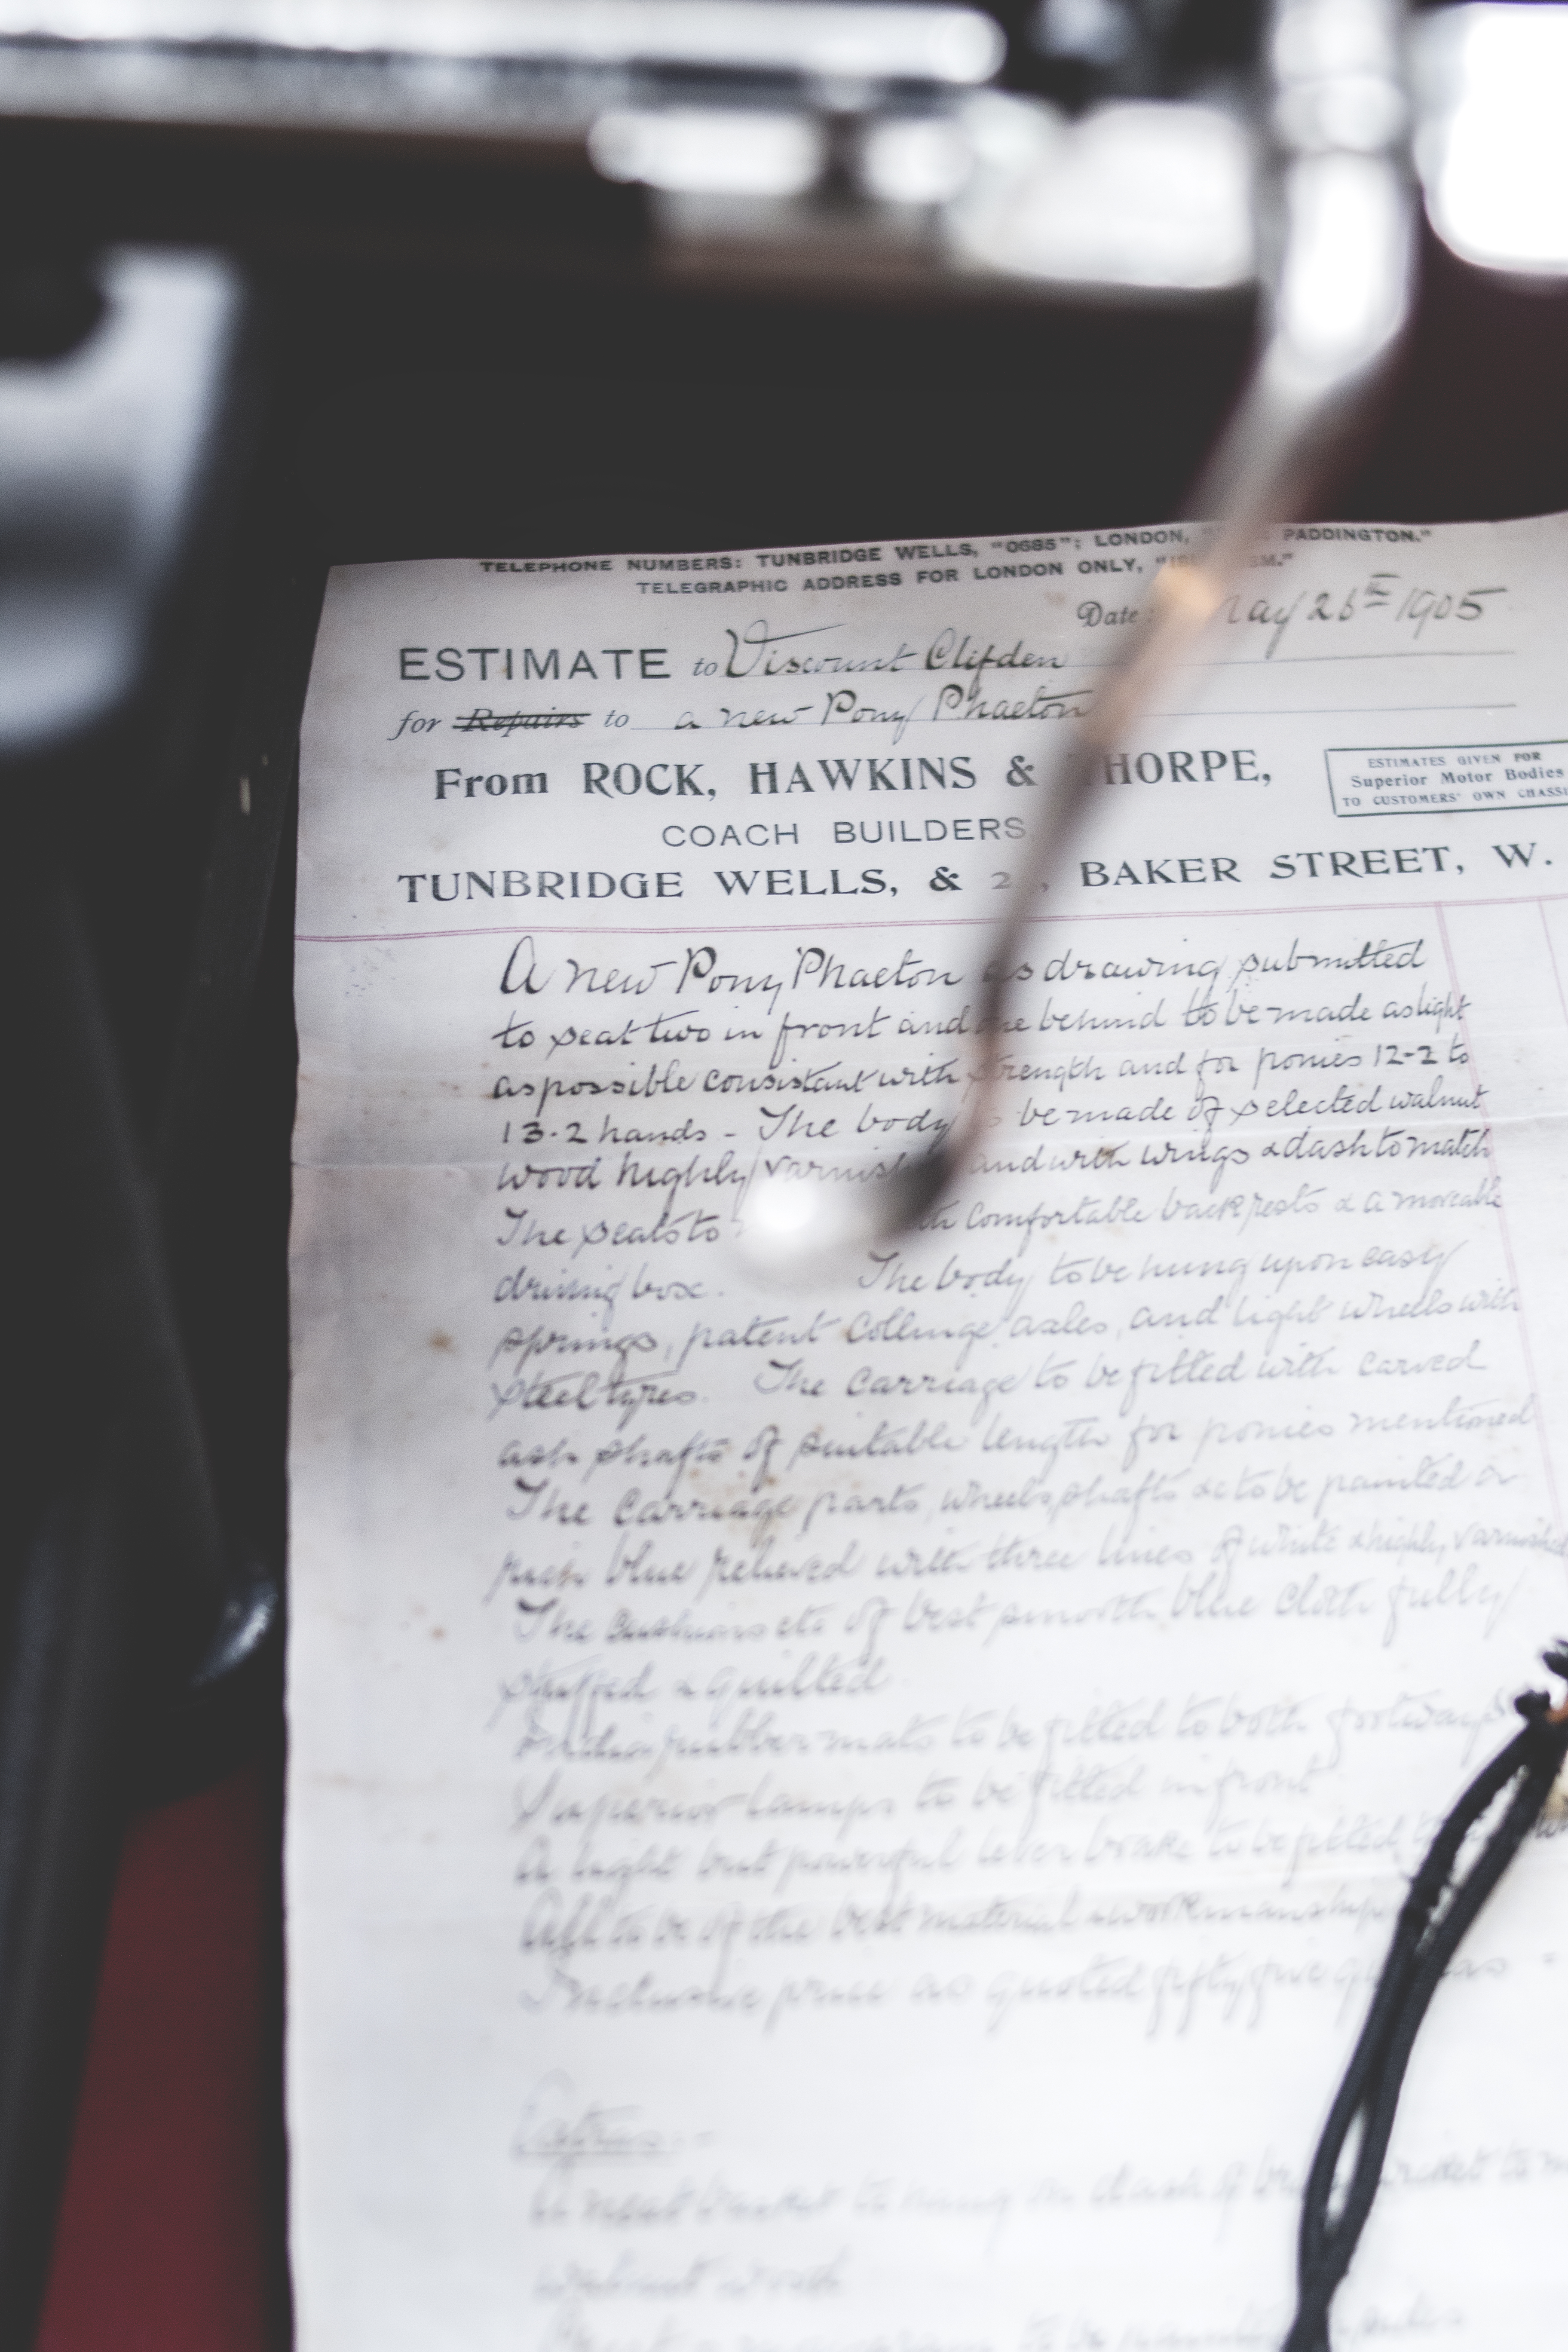 TELEPHONE NUMBERS: TUNBRIDGE WELLS, "0685"; LONDON, PADDINGTON."
TELEGRAPHIC ADDRESS FOR LONDON ONLY,
Date: May 26th 1905
ESTIMATE to Viscount Clifden
for Repairs to a new Pony Phaeton
From ROCK, HAWKINS & THORPE,
ESTIMATES GIVEN FOR
Superior Motor Bodies
TO CUSTOMERS' OWN CHASSI
COACH BUILDERS
TUNBRIDGE WELLS, & BAKER STREET, W.
A new Pony Phaeton as drawing submitted
to seat two in front and one behind to be made as light
as possible consistant with strength and for ponies 12-2 to
13-2 hands - The body be made of selected walnut
wood highly varnish and with wings & dash to match
The seats to comfortable back rests & a moveable
driving box. The body to be hung upon easy
springs, patent Collinge axles, and light wheels with
steel tyres. The Carriage to be fitted with carved
ash shafts of suitable length for ponies mentioned
The Carriage parts, wheels, shafts &c to be painted a
rich blue relieved with three lines of white & highly varnished
The cushions etc of best smooth blue cloth fully
stuffed & quilted
rubber mats to be fitted to both footways
Superior lamps to be fitted in front
A light but powerful lever brake to be fitted
All to be of the best material & workmanship
Inclusive price as quoted fifty five
Extras:-